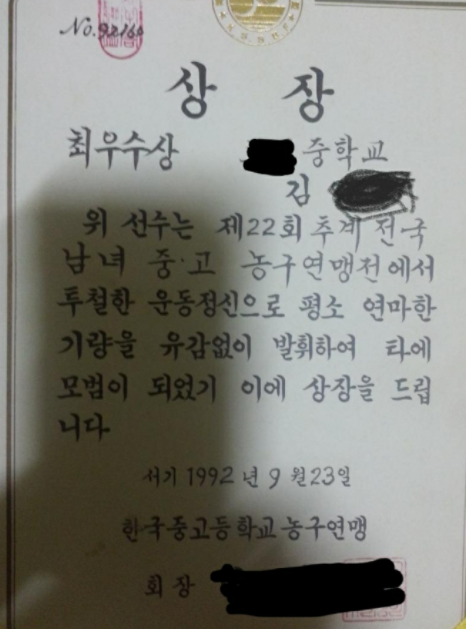 No. 92160
상 장
최우수상 중학교
김
위 선수는 제22회 추계 전국
남녀 중·고 농구연맹전에서
투철한 운동정신으로 평소 연마한
기량을 유감없이 발휘하여 타에
모범이 되었기 이에 상장을 드립
니다
서기 1992년 9월 23일
한국중고등학교농구연맹
회장